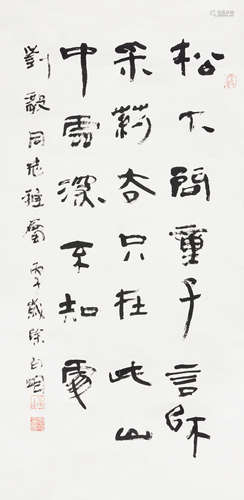 松下問童子言師
采葯去只在此山
中雲深不知處
劉毅同志雅屬 丙子歲